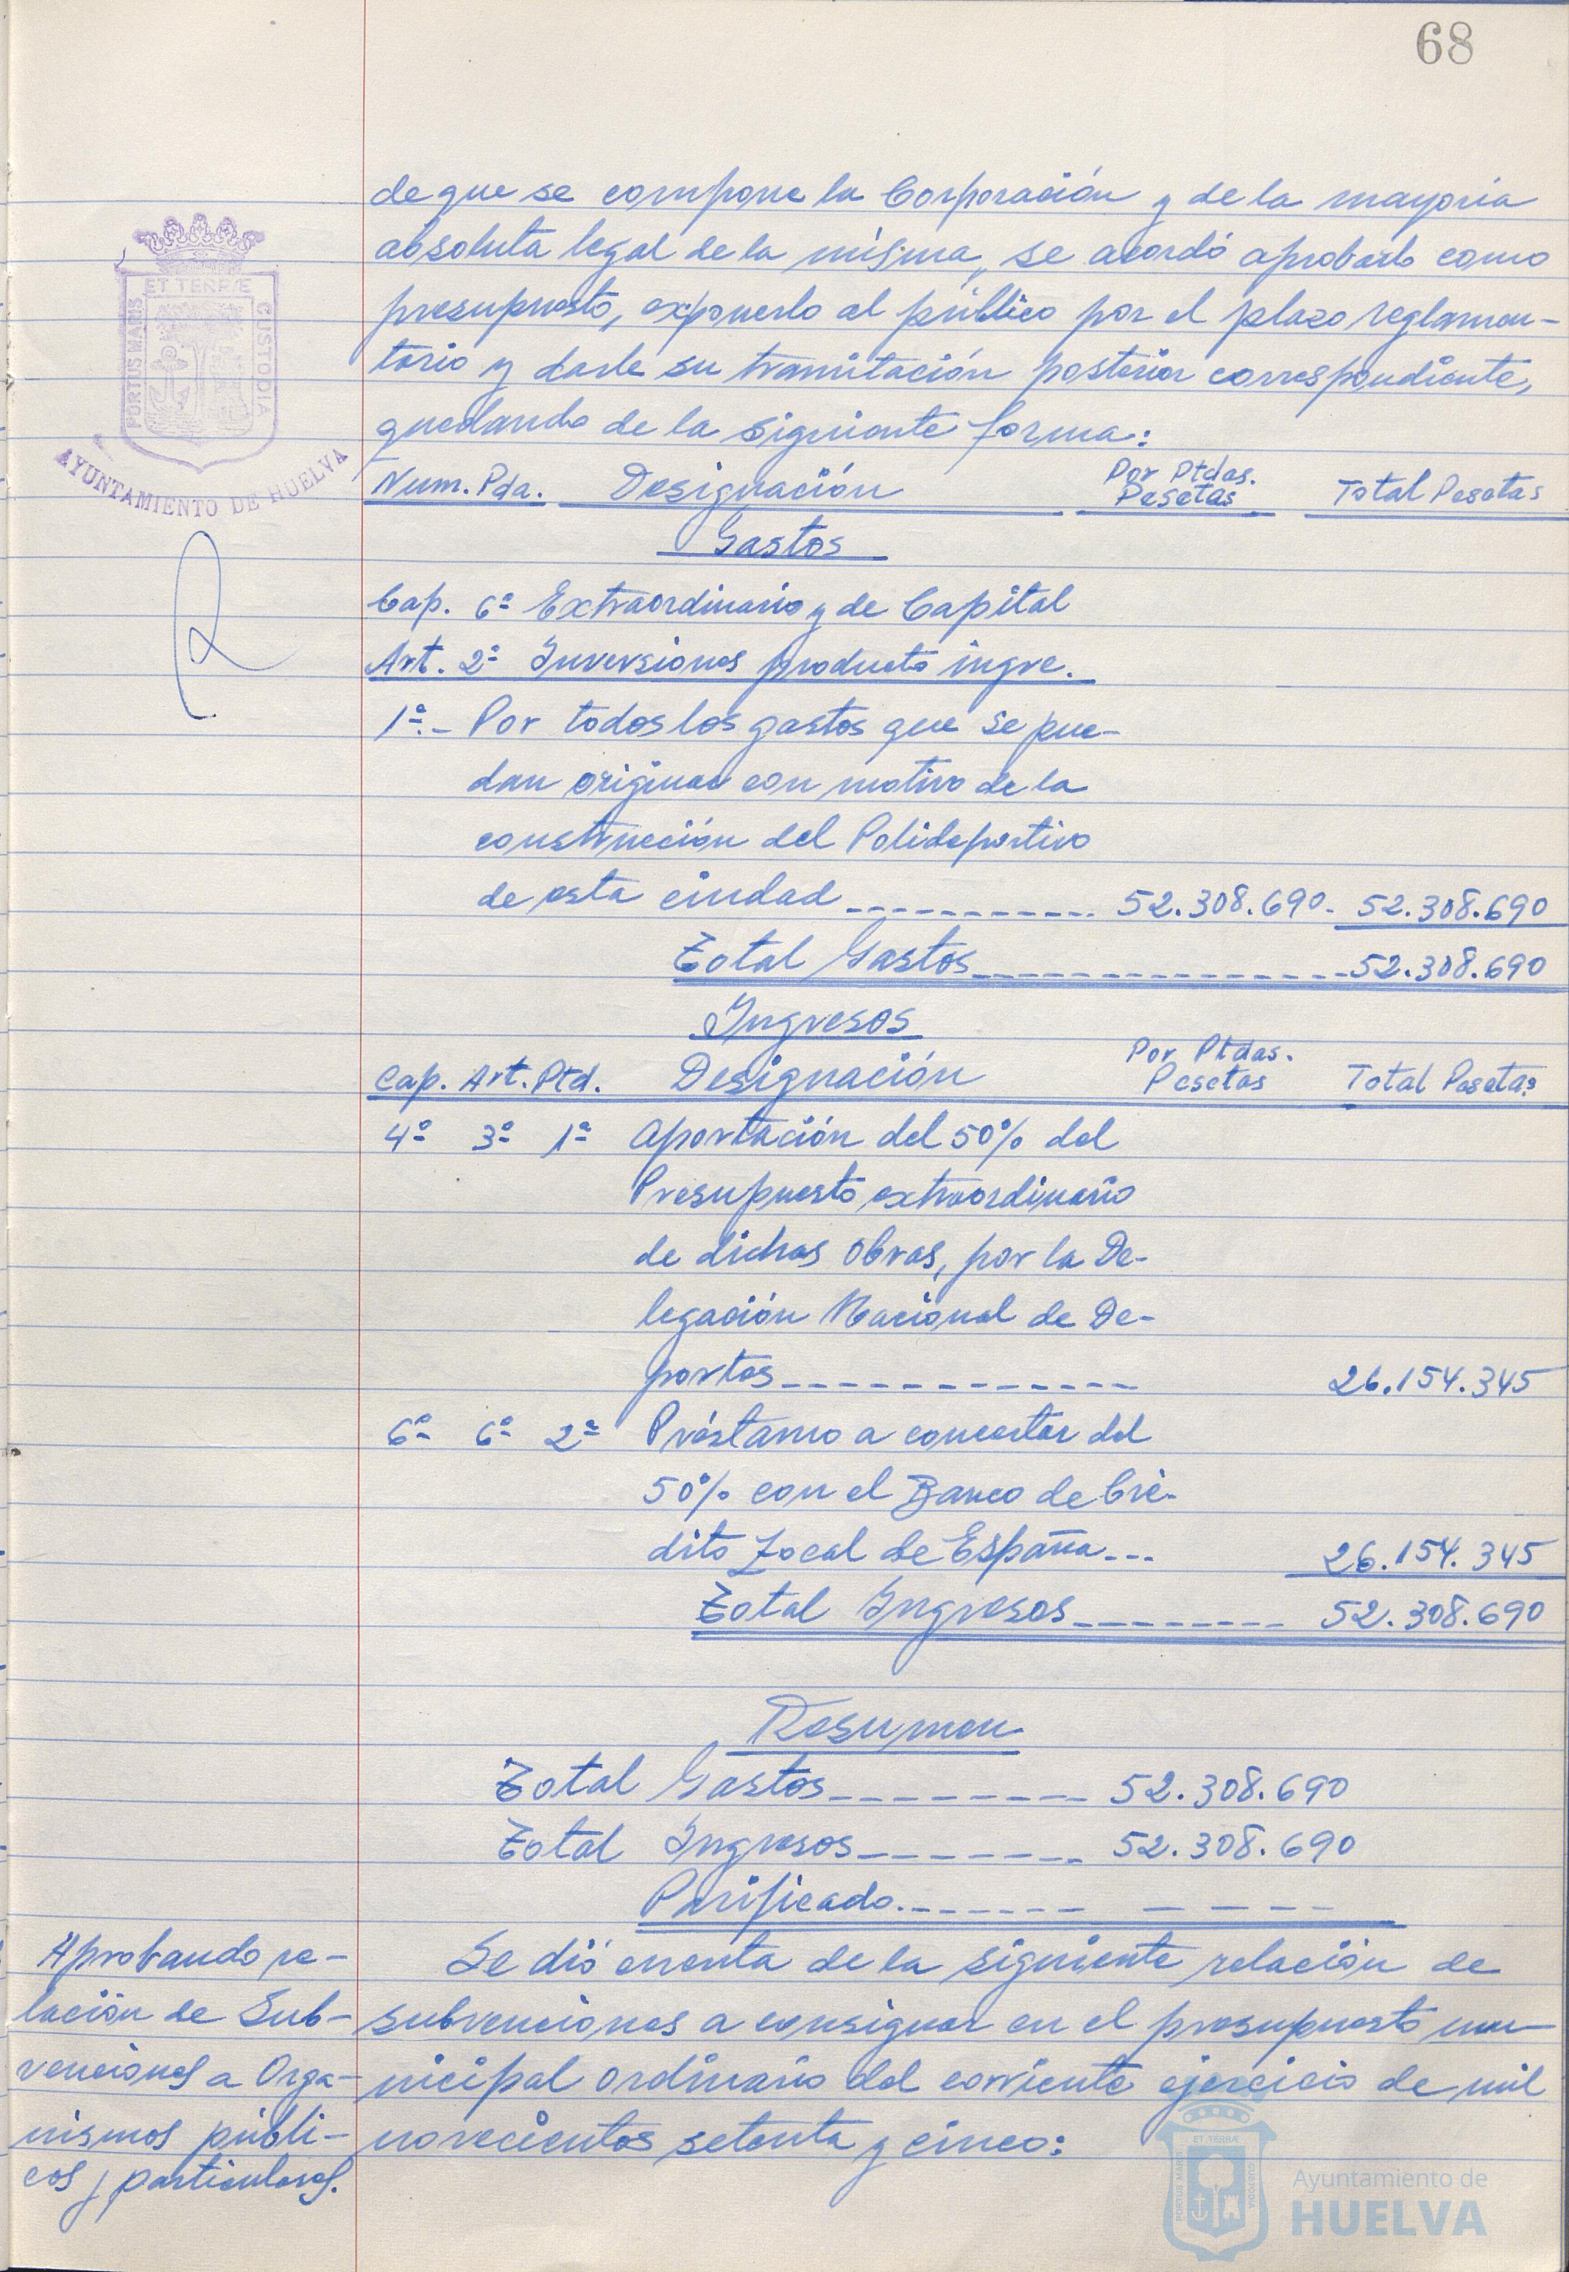 68
de que se compone la Corporación y de la mayoría
absoluta legal de la misma, se acordó aprobarlo como
presupuesto, exponerlo al público por el plazo reglamen-
tario y darle su tramitación posterior correspondiente,
quedando de la siguiente forma:
ET TERRÆ
PORTUS MARIS
CUSTODIA
AYUNTAMIENTO DE HUELVA
Num. Pda. Designación Por Ptdas. Pesetas Total Pesetas
Gastos
Cap. 6º Extraordinario y de Capital
Art. 2º Inversiones producto ingre.
1ª.- Por todos los gastos que se pue-
dan originar con motivo de la
construcción del Polideportivo
de esta ciudad ----------- 52.308.690.- 52.308.690
Total Gastos --------------- 52.308.690
Ingresos
Cap. Art. Ptd. Designación Por Ptdas. Pesetas Total Pesetas
4º 3º 1ª Aportación del 50% del
Presupuesto extraordinario
de dichas Obras, por la De-
legación Nacional de De-
portes ------------- 26.154.345
6º 6º 2ª Préstamo a concertar del
50% con el Banco de Cré-
dito Local de España --- 26.154.345
Total Ingresos -------- 52.308.690
Resumen
Total Gastos --------- 52.308.690
Total Ingresos ------- 52.308.690
Parificado. ------- - - - -
Aprobando re-
lación de Sub-
venciones a Orga-
nismos públi-
cos y particulares.
Se dió cuenta de la siguiente relación de
subvenciones a consignar en el presupuesto mu-
nicipal ordinario del corriente ejercicio de mil
novecientos setenta y cinco:
ET TERRÆ
PORTUS MARIS
CUSTODIA
Ayuntamiento de
HUELVA